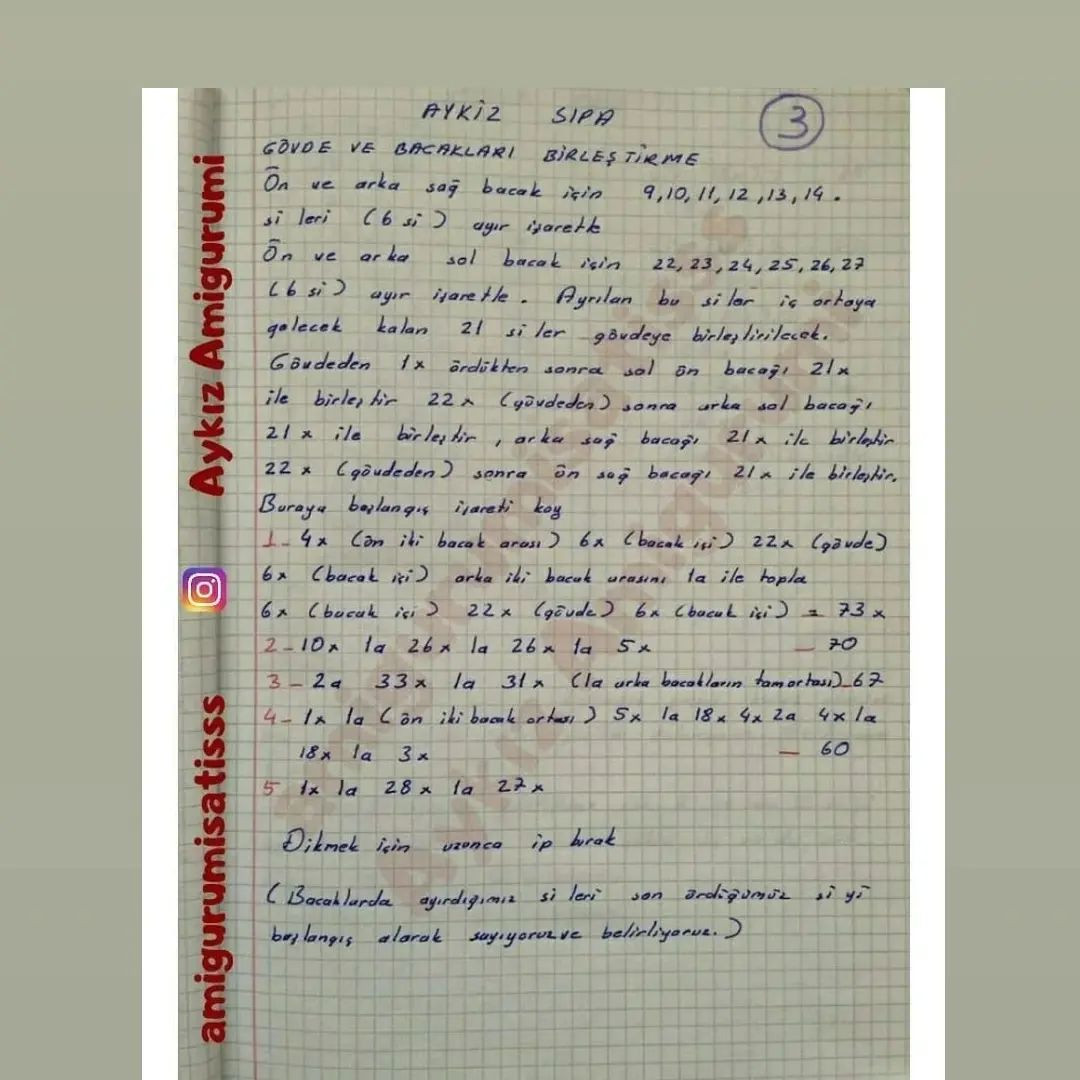 AYKİZ SIPA
3
GÖVDE VE BACAKLARI BİRLEŞTİRME
Ön ve arka sağ bacak için 9,10,11,12,13,14.
si leri (6 si) ayır işaretle
Ön ve arka sol bacak için 22,23,24,25,26,27
(6 si) ayır işaretle. Ayrılan bu siler iç ortaya
gelecek kalan 21 si ler gövdeye birleştirilecek.
Gövdeden 1x ördükten sonra sol ön bacağı 21x
ile birleştir 22x (gövdeden) sonra arka sol bacağı
21x ile birleştir, arka sağ bacağı 21x ile birleştir
22x (gövdeden) sonra ön sağ bacağı 21x ile birleştir.
Buraya başlangış işareti koy
1- 4x (ön iki bacak arası) 6x (bacak içi) 22x (gövde)
6x (bacak içi) arka iki bacak arasını 1a ile topla
6x (bacak içi) 22x (gövde) 6x (bacak içi) = 73x
2- 10x 1a 26x 1a 26x 1a 5x - 70
3- 2a 33x 1a 31x (1a arka bacakların tam ortası)-67
4- 1x 1a (ön iki bacak ortası) 5x 1a 18x 4x 2a 4x 1a
18x 1a 3x - 60
5 1x 1a 28x 1a 27x
Dikmek için uzunca ip bırak
(Bacaklarda ayırdığımız si leri son ördüğümüz si yi
başlangış alarak sayıyoruz ve belirliyoruz.)
Aykız Amigurumi
amigurumisatisss